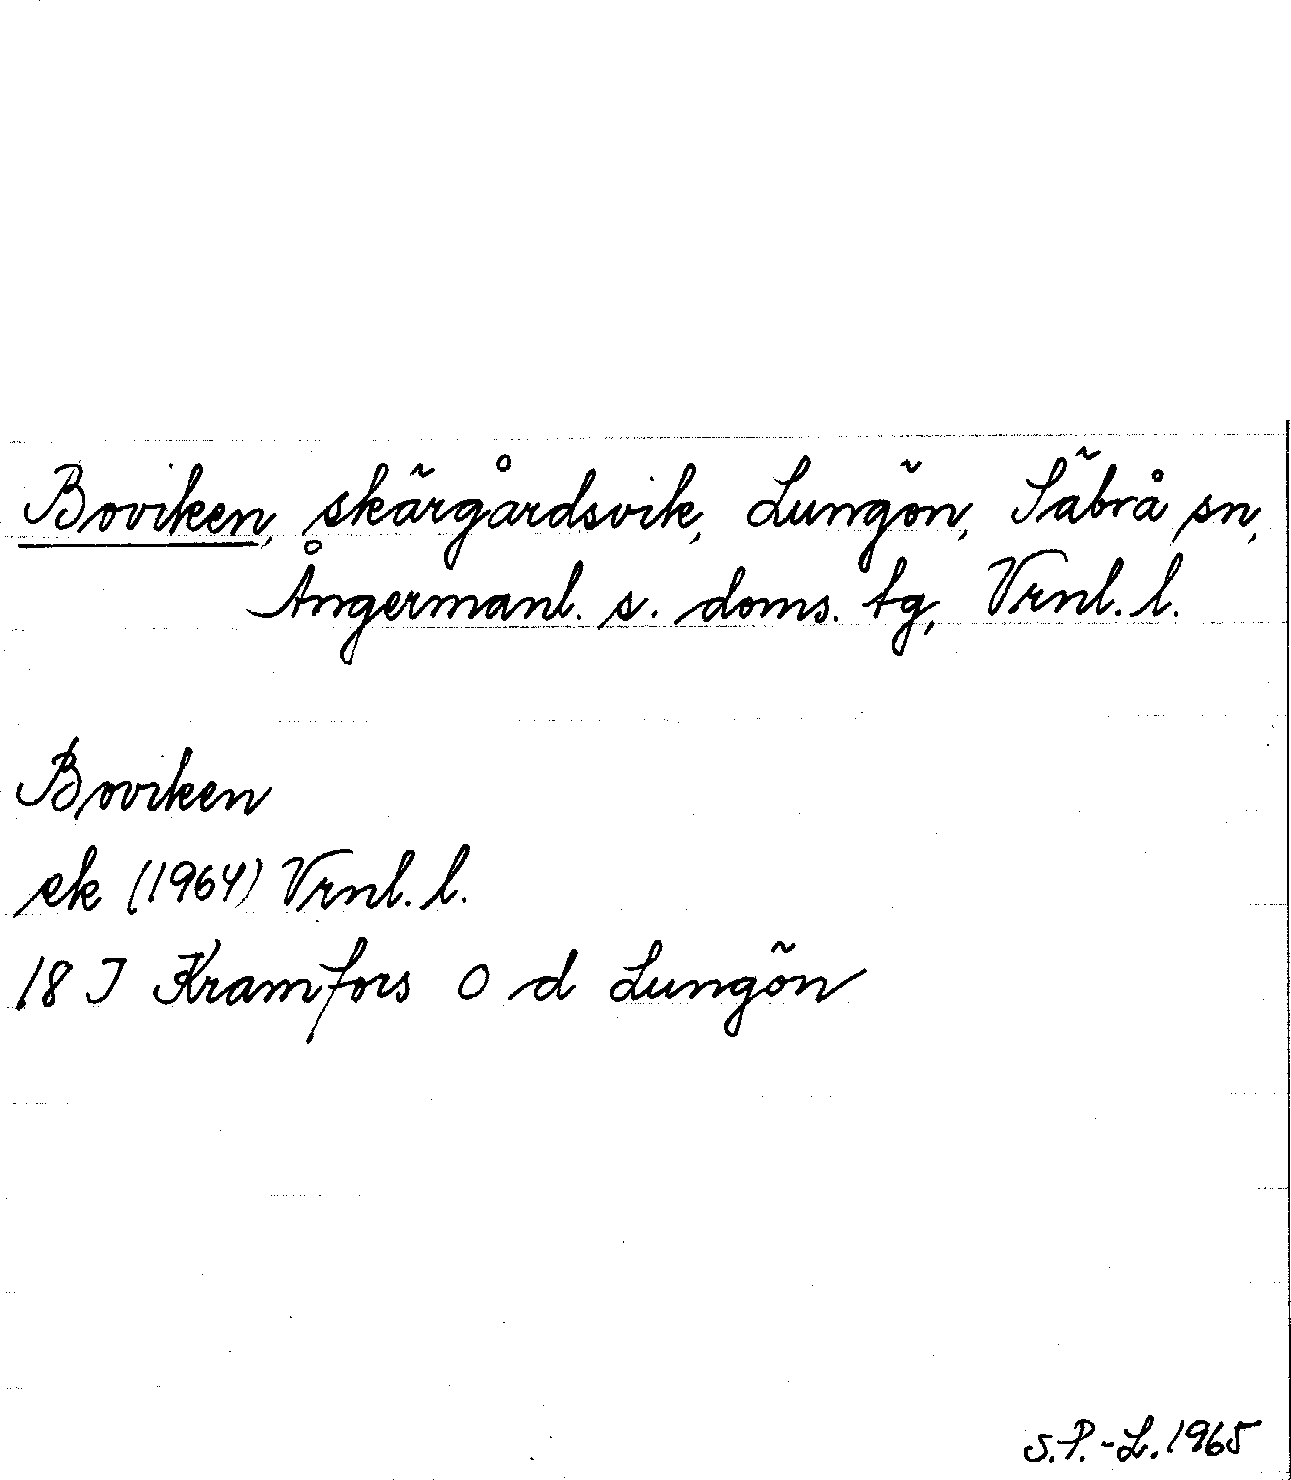 Boviken, skärgårdsvik, Lungön, Säbrå sn,
Ångermanl. s. doms. tg, Vrnl. l.
Boviken
ek (1964) Vrnl. l.
18 J Kramfors O d Lungön
S.P.-L. 1965